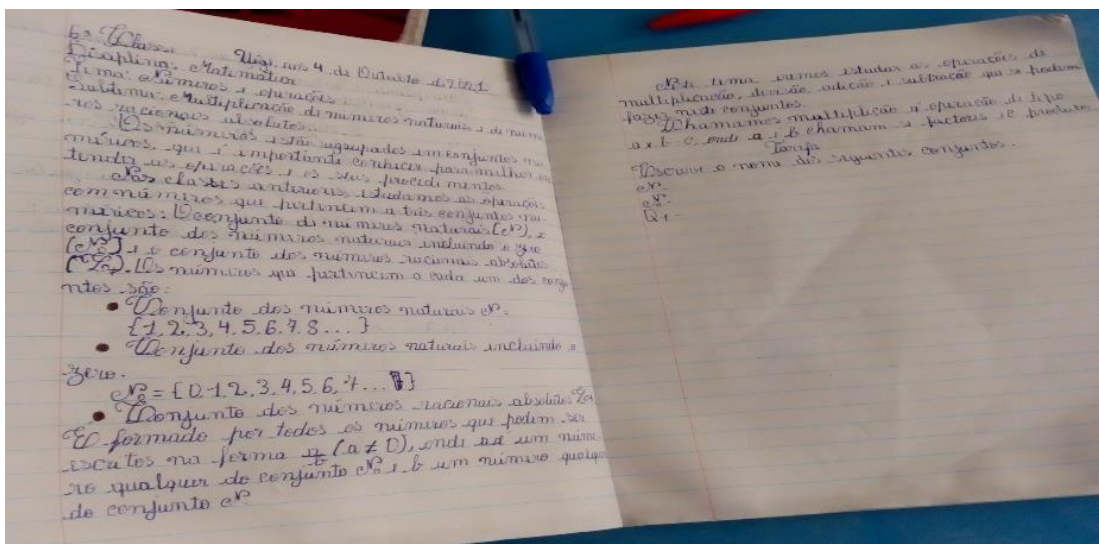 6ª Classe Uíge, aos 4 de Outubro de 2021
Disciplina: Matemática
Tema: Números e operações
Subtema: Multiplicação de números naturais e de núme
ros racionais absolutos.
Os números estão agrupados em conjuntos nu
méricos, que é importante conhecer para melhor en
tender as operações e os seus procedimentos
Nas classes anteriores, estudamos as operações
com números que pertencem a três conjuntos nu-
méricos: O conjunto de números naturais (N), o
conjunto dos números naturais incluindo o zero
(N₀) e o conjunto dos números racionais absolutos
Os números que pertencem a cada um dos conju
ntos são:
• Conjunto dos números naturais N=
{1,2,3,4,5.6.7.8...}
• Conjunto dos números naturais incluindo o
zero.
N₀ = {0.1.2,3,4,5,6,7...}
• Conjunto dos números racionais absolutos
É formado por todos os números que podem ser
escritos na forma a/b (a ≠ 0), onde a é um núme
ro qualquer do conjunto N₀ e b um número qualqu
do conjunto N.
Neste tema vamos estudar as operações de
multiplicação, divisão adição e subtração que se podem
fazer neste conjuntos.
Chamamos multiplicação a operação do tipo
a x b = c, onde a e b chamam-se factores e c produto
Tarefa
Escreve o nome dos seguintes conjuntos.
N-
N₀-
Q+-